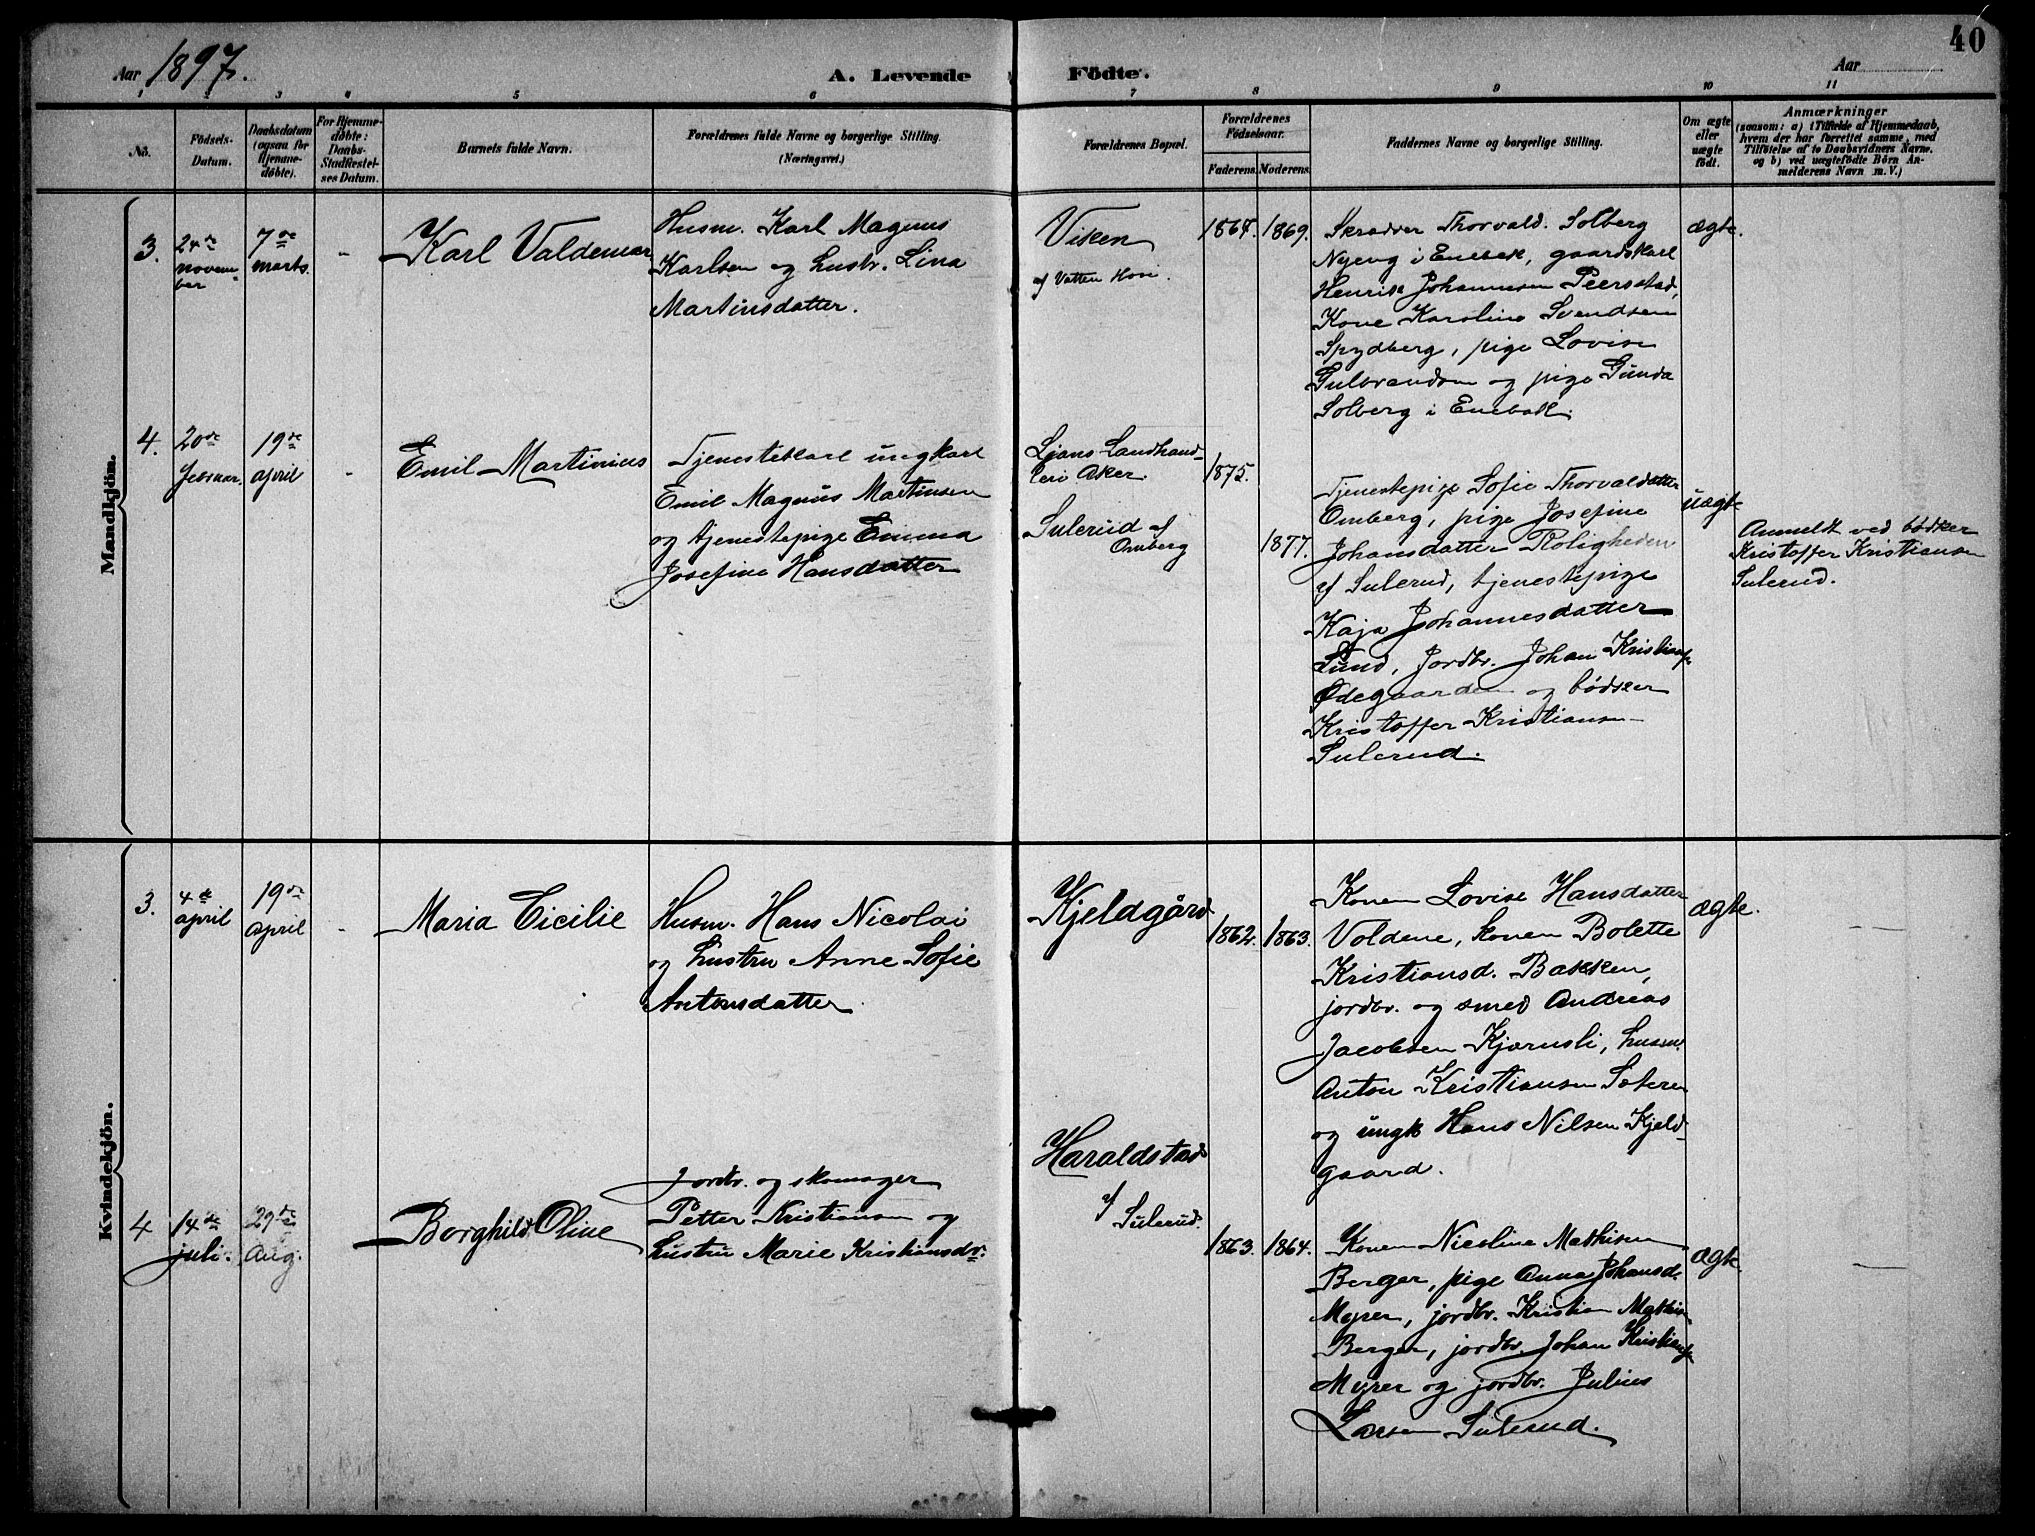 40
Aar 1897.
A. Levende Födte.
Aar
1 2 3 4 5 6 7 8 9 10 11
No.
Födsels-
Datum.
Daabsdatum
(ogsaa for
Hjemme-
döbte).
For Hjemme-
döbte:
Daabs-
Stadfæstel-
ses Datum.
Barnets fulde Navn.
Forældrenes fulde Navne og borgerlige Stilling.
(Næringsvei.)
Forældrenes Bopæl.
Forældrenes
Födselsaar.
Faderens. Moderens.
Faddernes Navne og borgerlige Stilling.
Om ægte
eller
uægte
födt.
Anmærkninger
(saasom: a) i Tilfælde af Hjemmedaab,
hvem der har forrettet samme, med
Tilföielse af to Daabsvidners Navne.
og b) ved uægtefödte Börn An-
melderens Navn m. V.)
Mandkjön.
3.
24de
novem-
ber
7de
marts.
-
Karl Valdemar
Husm. Karl Magnus
Karlsen og hustr. Lina
Martinsdatter.
Viken
af Vatten Hov.
1867. 1869.
Skrædder Thorvald. Solberg
Nyeng i Enebak, gaardskarl
Henrik Johannesen Peersstad,
Kone Karoline Svendsen
Spydberg, pige Lovise
Gulbrandsen og pige Gunda
Solberg i Enebak.
ægte.
4.
20de
februar.
19de
april
-
Emil Martinius
Tjenestekarl ungkarl
Emil Magnus Martinsen
og tjenestepige Emma
Josefine Hansdatter
Ljans Landhand-
leri Aker.
Sulerud af
Omberg
1875.
1877.
Tjenestepige Sofie Thorvaldsdatter
Omberg, pige Josefine
Johansdatter Roligheden
af Sulerud, tjenestepige
Kaja Johannesdatter
Lund, Jordbr. Johan Kristians.
Ødegaarden og bødker
Kristoffer Kristiansen
Sulerud.
uægte
Anmeldt ved bødker
Kristoffer Kristiansen
Sulerud.
Kvindekjön.
3.
4de
april
19de
april
-
Maria Cicilie
Husm. Hans Nicolai
og hustru Anne Sofie
Antonsdatter
Kjeldgård
1862. 1863.
Konen Lovise Hansdatter
Voldene, konen Bolette
Kristiansd. Bakken,
jordbr. og smed Andreas
Jacobsen Kjærnsli, husm.
Anton Kristiansen Sæteren
og ungk Hans Nilsen Kjeld-
gaard.
ægte.
4
14de
juli.
29de
Aug.
Borghild Oline
Jordbr. og skomager
Petter Kristiansen og
hustru Marie Kristiansdr.
Haraldstad
af Sulerud.
1863. 1864.
Konen Nicoline Mathisen
Berger, pige Anna Johansd.
Myrer, jordbr. Kristian Mathis-
Berger, jordbr. Johan Kristians
Myrer og jordbr. Julius
Larsen Sulerud.
ægte.